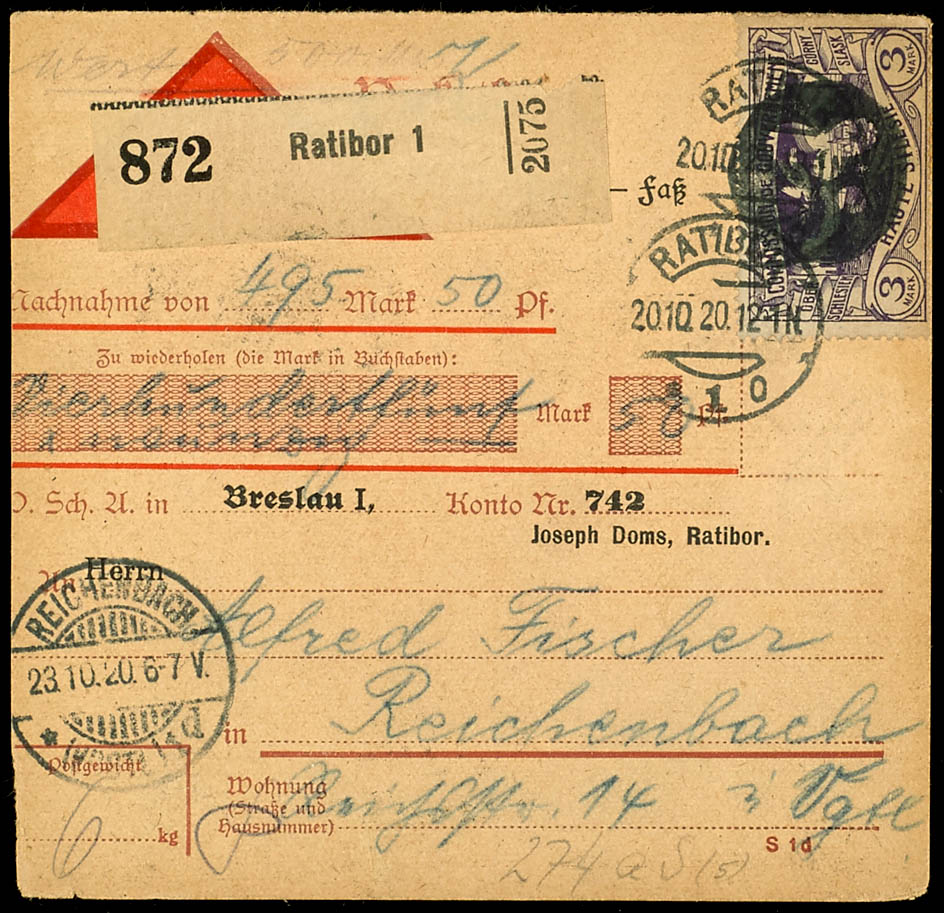 Wert 500 M
872 Ratibor 1 2075
Faß
RATIBOR
20.10.
RATIBOR
20.10.20.12-1N
1 o
COMMISSION DE GOUVERNEMENT
HAUTE SILÉSIE
GÓRNY ŚLĄSK
OBER SCHLESIEN
3 MARK
3 MARK
Nachnahme von 495 Mark 50 Pf.
Zu wiederholen (die Mark in Buchstaben):
Vierhundertfünf Mark 50 Pf.
u neunzig
P. Sch. A. in Breslau I, Konto Nr. 742
Joseph Doms, Ratibor.
An Herrn
Alfred Fischer
in Reichenbach
REICHENBACH
23.10.20.6-7 V.
(VOGTL.)
Postgewicht
6 kg
Wohnung
(Straße und
Hausnummer)
14 i Vgtl
S 1d
274